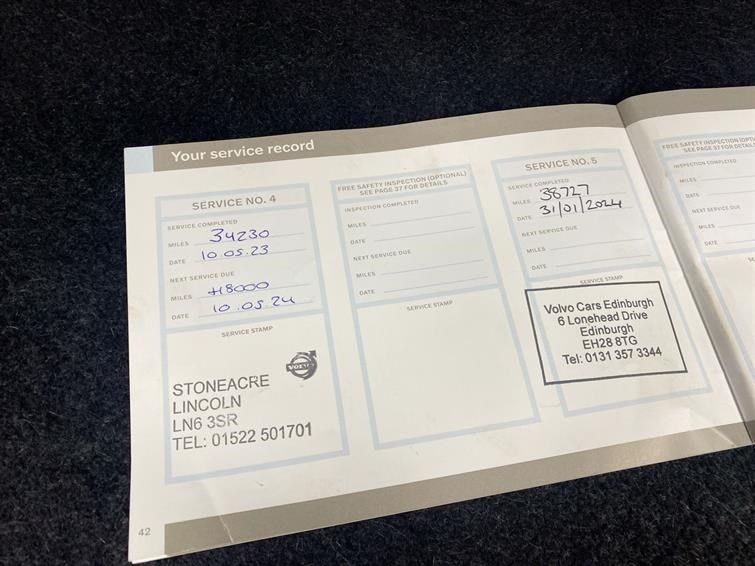 Your service record
SERVICE NO. 4
SERVICE COMPLETED
MILES 34230
DATE 10.05.23
NEXT SERVICE DUE
MILES +18000
DATE 10.05.24
SERVICE STAMP
VOLVO
STONEACRE
LINCOLN
LN6 3SR
TEL: 01522 501701
FREE SAFETY INSPECTION (OPTIONAL)
SEE PAGE 37 FOR DETAILS
INSPECTION COMPLETED
MILES
DATE
NEXT SERVICE DUE
MILES
DATE
SERVICE STAMP
SERVICE NO. 5
SERVICE COMPLETED
MILES 38727
DATE 31/01/2024
NEXT SERVICE DUE
MILES
DATE
SERVICE STAMP
Volvo Cars Edinburgh
6 Lonehead Drive
Edinburgh
EH28 8TG
Tel: 0131 357 3344
FREE SAFETY INSPECTION
SEE PAGE 37 FOR DETAILS
INSPECTION COMPLETED
MILES
DATE
NEXT SERVICE DUE
MILES
DATE
42